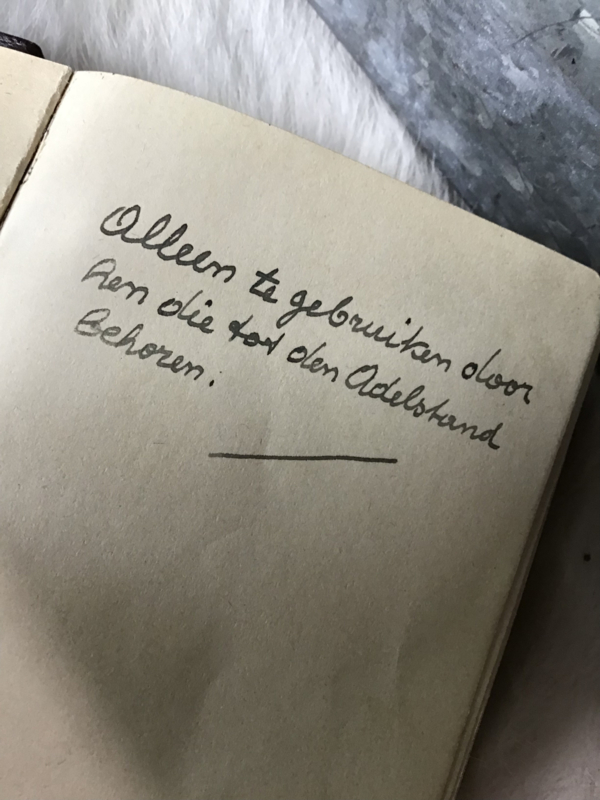 Alleen te gebruiken door
Hen die tot den Adelstand
Behoren.